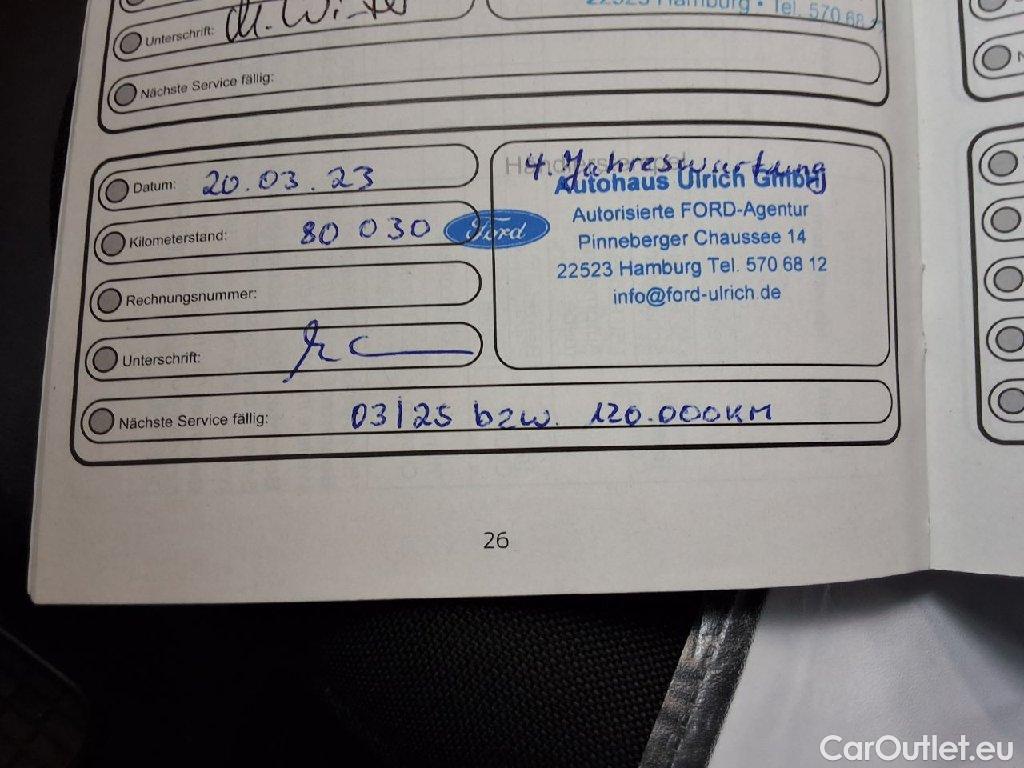 22523 Hamburg · Tel. 570 68
Unterschrift:
Nächste Service fällig:
Datum: 20.03.23
Kilometerstand: 80 030
Rechnungsnummer:
Unterschrift:
Ford
4. Jahreswartung
Autohaus Ulrich GmbH
Autorisierte FORD-Agentur
Pinneberger Chaussee 14
22523 Hamburg Tel. 570 68 12
info@ford-ulrich.de
Nächste Service fällig: 03/25 bzw. 120.000KM
26
CarOutlet.eu